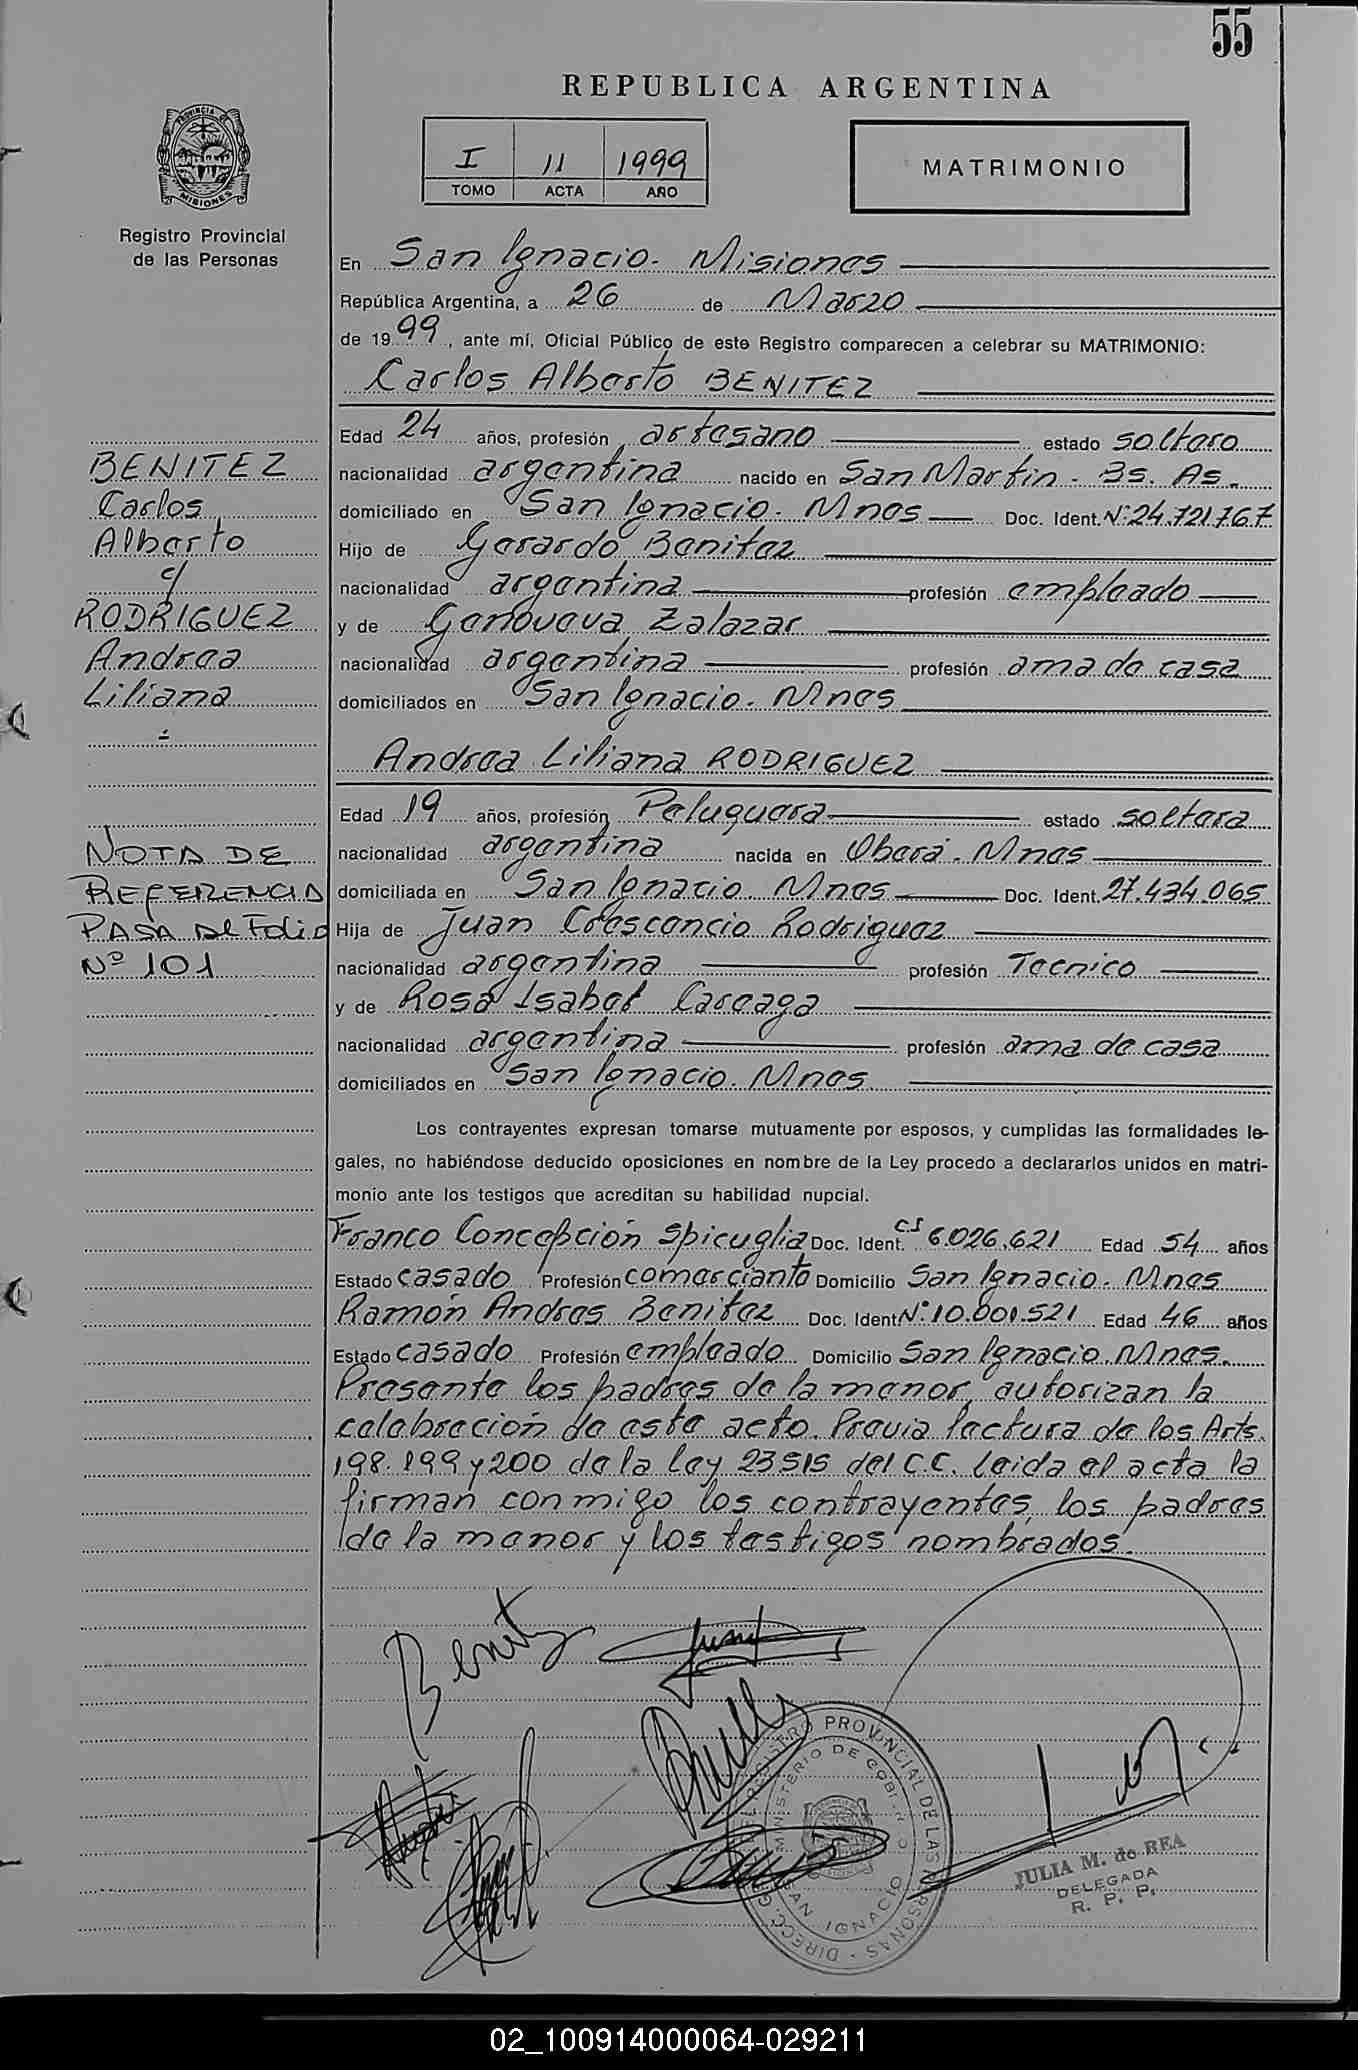 55
REPUBLICA ARGENTINA
I 11 1999
TOMO ACTA AÑO
MATRIMONIO
PROVINCIA DE MISIONES
Registro Provincial
de las Personas
En San Ignacio. Misiones
República Argentina, a 26 de Marzo
de 1999, ante mí, Oficial Público de este Registro comparecen a celebrar su MATRIMONIO:
Carlos Alberto BENITEZ
Edad 24 años, profesión artesano estado soltero
nacionalidad argentina nacido en San Martin - Bs. As.
domiciliado en San Ignacio. Mnes Doc. Ident. Nº: 24.721.767
Hijo de Gerardo Benitez
nacionalidad argentina profesión empleado
y de Genoveva Zalazar
nacionalidad argentina profesión ama de casa
domiciliados en San Ignacio. Mnes
Andrea Liliana RODRIGUEZ
Edad 19 años, profesión Peluquera estado soltera
nacionalidad argentina nacida en Oberá. Mnes
domiciliada en San Ignacio. Mnes Doc. Ident. 27.434.065
Hija de Juan Crescencio Rodriguez
nacionalidad argentina profesión Tecnico
y de Rosa Isabel Careaga
nacionalidad argentina profesión ama de casa
domiciliados en San Ignacio. Mnes.
BENITEZ
Carlos
Alberto
c/
RODRIGUEZ
Andrea
Liliana
NOTA DE
REFERENCIA
PASA Al Folio
Nº 101
Los contrayentes expresan tomarse mutuamente por esposos, y cumplidas las formalidades le-
gales, no habiéndose deducido oposiciones en nombre de la Ley procedo a declararlos unidos en matri-
monio ante los testigos que acreditan su habilidad nupcial.
Franco Concepción Spicuglia Doc. Ident. CI 6.026.621 Edad 54 años
Estado casado Profesión comerciante Domicilio San Ignacio. Mnes
Ramón Andres Benitez Doc. Ident Nº: 10.001.521 Edad 46 años
Estado casado Profesión empleado Domicilio San Ignacio. Mnes.
Presente los padres de la menor, autorizan la
celebración de este acto. Previa lectura de los Arts.
198.199 y 200 de la ley 23515 del C.C. leida el acta la
firman conmigo los contrayentes, los padres
de la menor y los testigos nombrados.
Benitez
DIRECC. GRAL. DEL REGISTRO PROVINCIAL DE LAS PERSONAS
MINISTERIO DE GOBIERNO
SAN IGNACIO
JULIA M. de REA
DELEGADA
R. P. P.
02_100914000064-029211